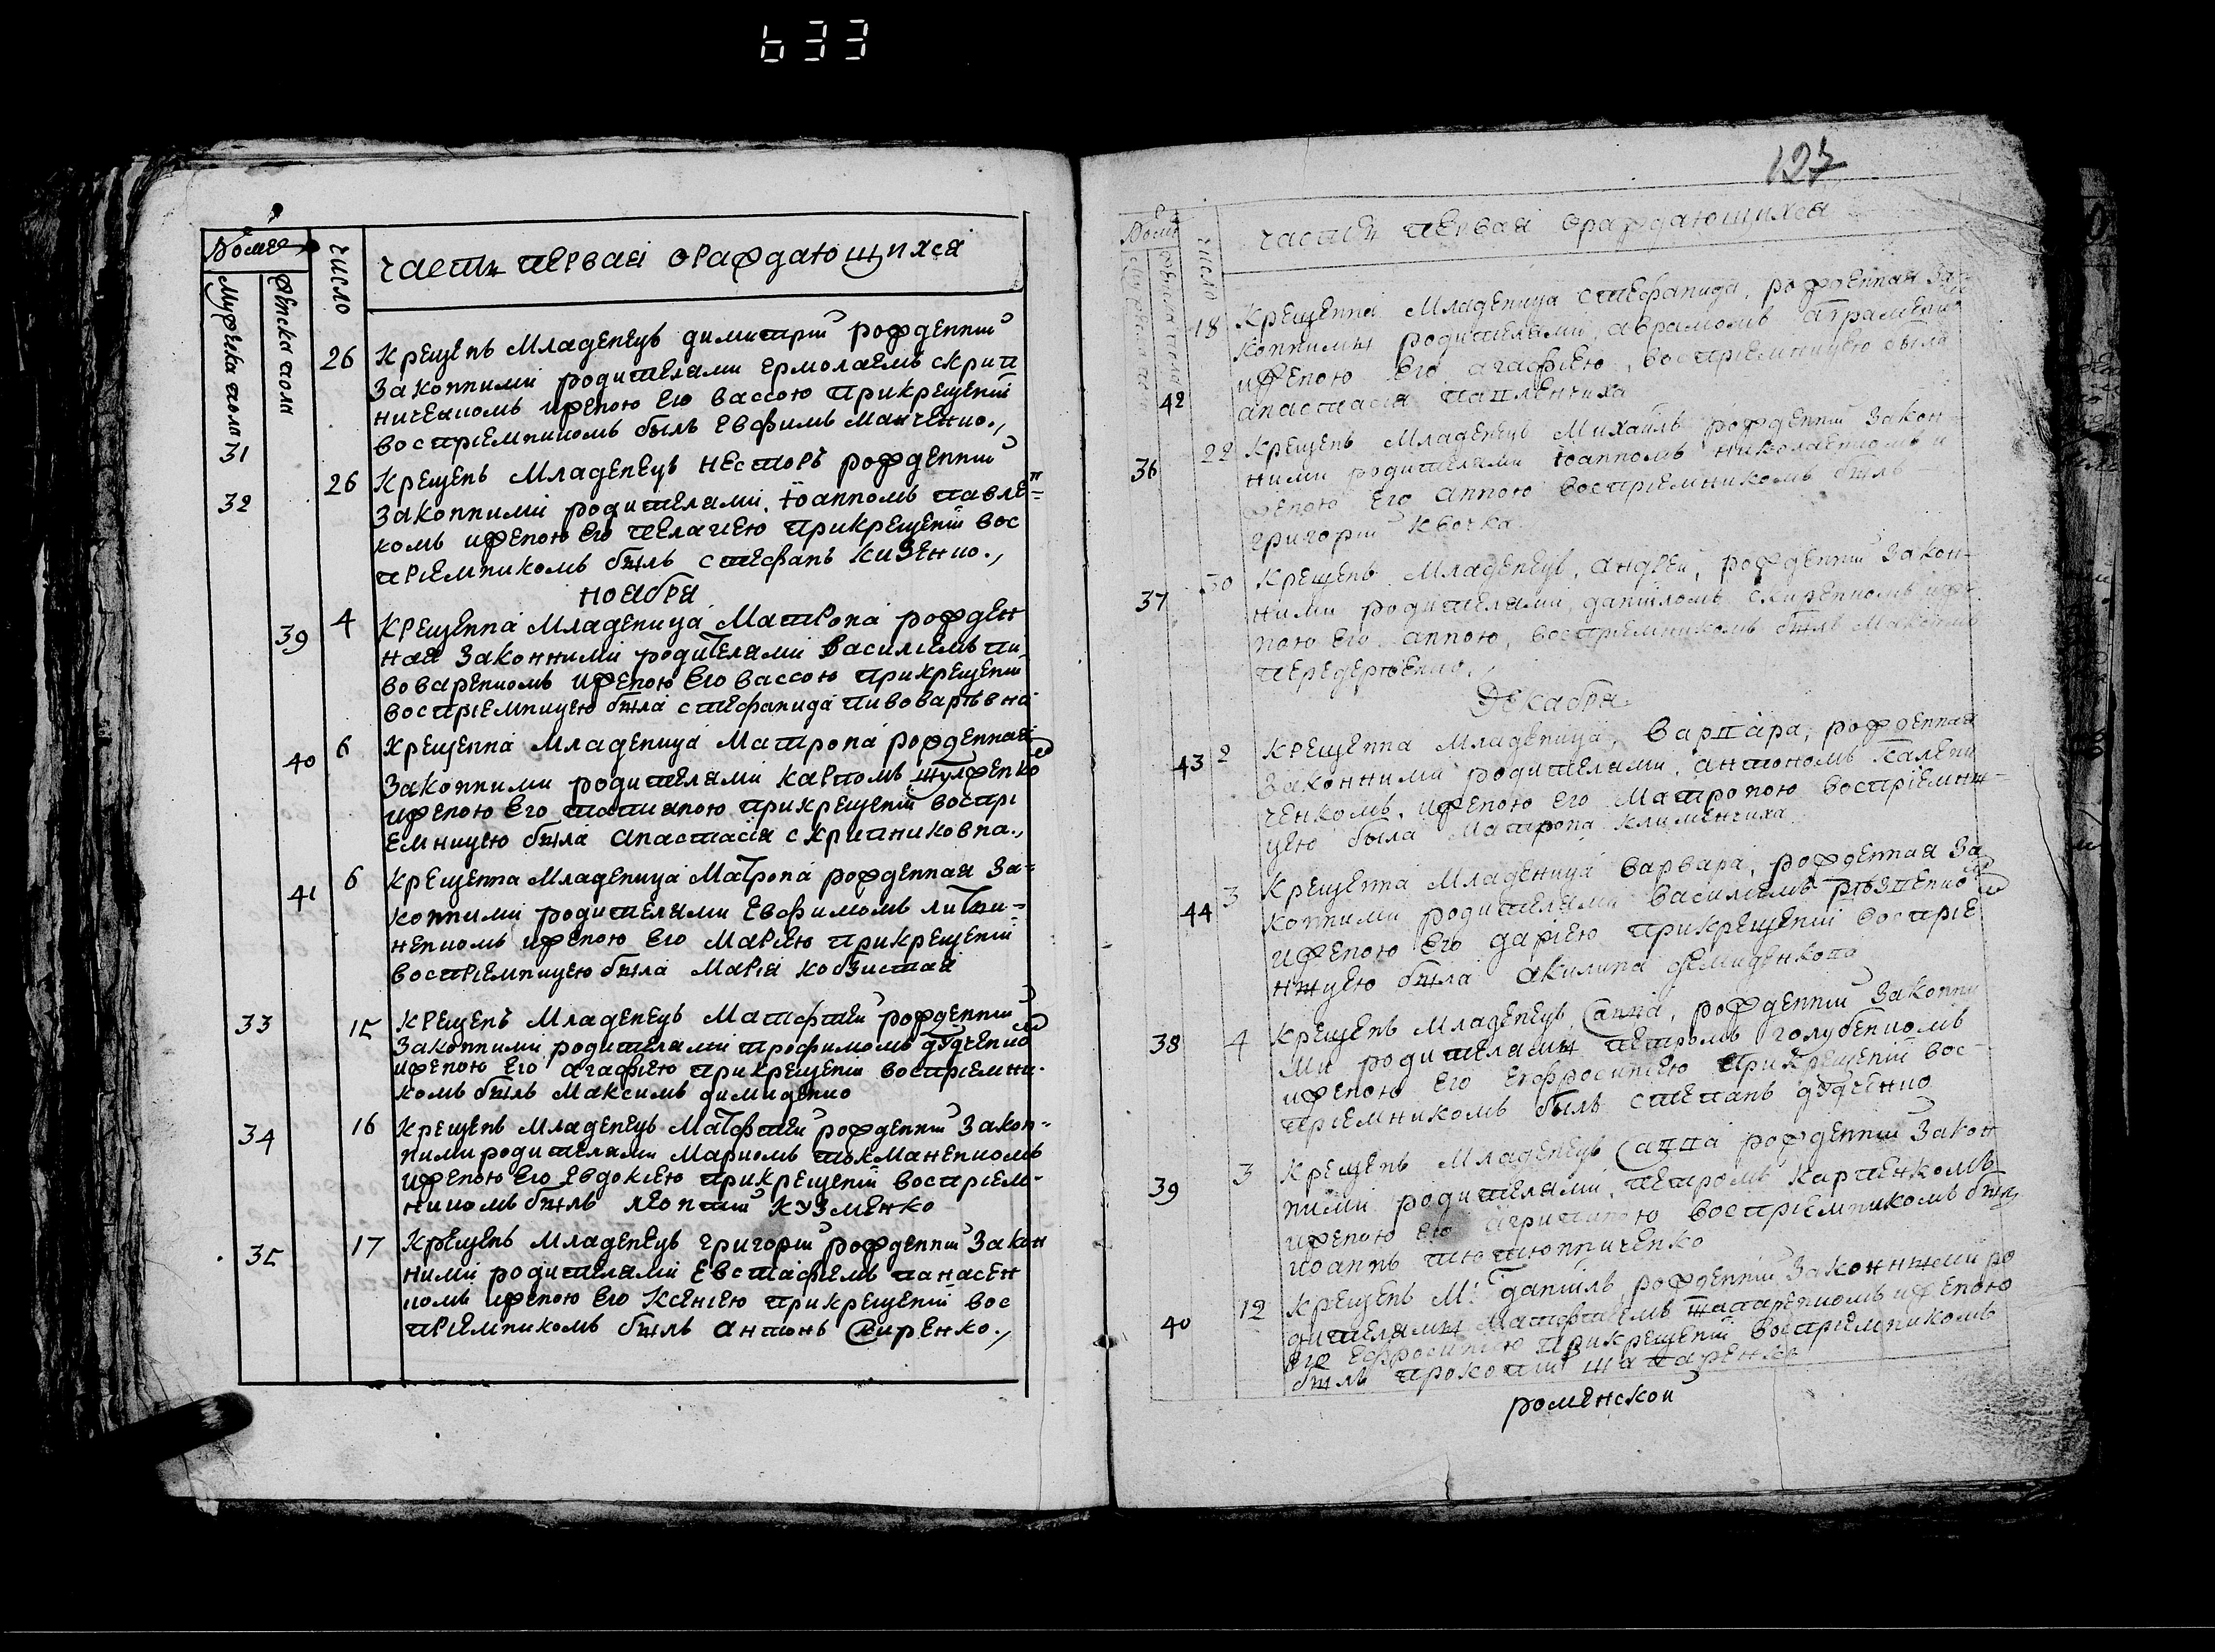 633
Номера
Мужеска пола
Женска пола
Число
Часть первая ораждающихся
31
26
Крещенъ младенецъ димитрій рожденній
законними родителами ермолаемъ скрип
ниченкомъ иженою его вассою прикрещеніи
воспріемникомъ былъ евфимъ манченко.,
32
26
Крещенъ младенецъ несторъ рожденній
законними родителами, іоанномъ павлен=
комъ иженою его пелагіею прикрещеніи вос
пріемникомъ былъ стефанъ кизенко.,
ноабра
39
4
Крещенна младеница матрона рожден
ная законними родителами василіемъ пи
воваренкомъ иженою его вассою прикрещеніи
воспріемницею была стефанида пивоваривна
40
6
Крещенна младеница матрона рожденная
законними родителами карпомъ шулженко
иженою его татианою прикрещеніи воспрі
емницею была анастасіа скрипниковна.,
41
6
Крещенна младеница матрона рожденная за=
конними родителами евфимомъ литви=
ненкомъ иженою его маріею прикрещеніи
воспріемницею была маріа кобзистаа
33
15
Крещенъ младенецъ матфтей рожденній
законними родителами трофимомъ дудченко
иженою его агафіею прикрещеніи воспріемни-
комъ былъ максимъ димиденко
34
16
Крещенъ младенецъ матфтей рожденній закон-
ними родителами маркомъ токманенкомъ
иженою его евдокіею прикрещеніи воспріем-
никомъ былъ леонтій кузменко
35
17
Крещенъ младенецъ григорій рожденній закон
ними родителами евстафіемъ панасен
комъ иженою его ксеніею прикрещеніи вос
пріемникомъ былъ антонъ скиренко.,
127
Номе
число
части первая ораждающихся
42
18
Крещенна младеница стефанида, рожденная за
конними родителами, аврамомъ
иженою его агафіею, воспріемницею была
анастасіа павленчиха
36
22
Крещенъ младенецъ михаилъ рожденній закон
ними родителами іоанномъ николаенкомъ и
женою его анною воспріемникомъ былъ
григорій квочка
37
30
Крещенъ младенецъ, андрей, рожденній закон-
ними родителами, даніиломъ скиренкомъ иже
ною его анною, воспріемникомъ былъ максимъ
передеріенко,
Декабра
43
2
Крещенна младеница, варвара, рожденная
законними родителами, антономъ калени
ченкомъ, иженою его матроною воспріемни-
цею была матрона клименчиха
44
3
Крещенна младеница варвара, рожденная за
конними родителами василіемъ резненко
иженою его даріею прикрещеніи воспріе
ницею была акилина демиденкова
38
4
Крещенъ младенецъ, санна, рожденній законни
ми родителами петромъ голубенкомъ
иженою его евфросиніею прикрещеніи вос-
пріемникомъ былъ степанъ дудченко
39
3
Крещенъ младенецъ савва рожденній закон
ними родителами, петромъ карпенкомъ
иженою его агрипиною воспріемникомъ былъ
иоаннъ тютюнниченко
40
12
Крещенъ м: даніилъ рожденній законними ро
дителами матфтеемъ шапаренкомъ иженою
его ефросиніею прикрещеніи воспріемникомъ
былъ прокопій шапаренко
роменской